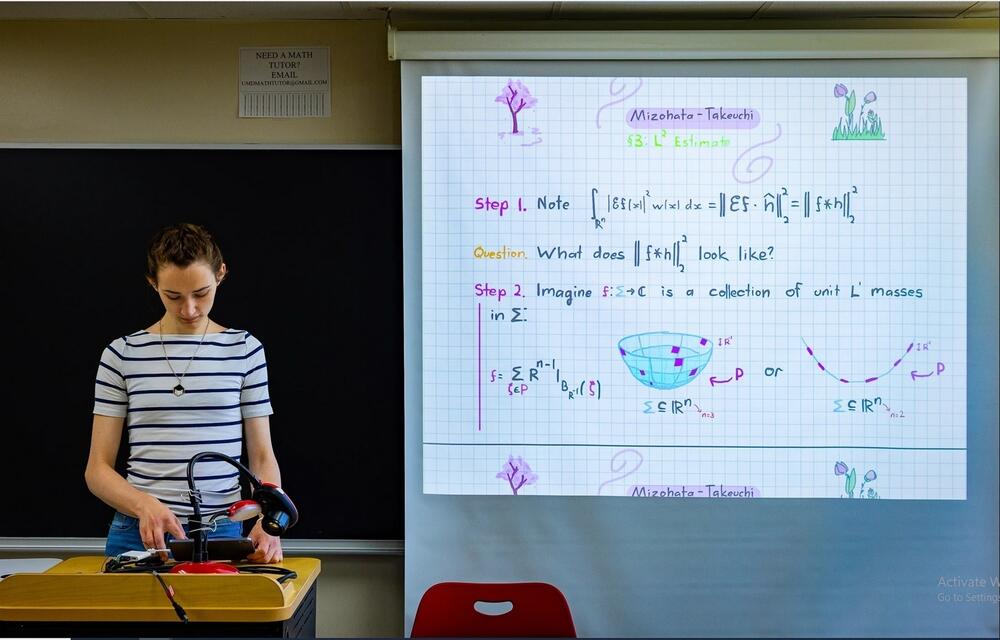 NEED A MATH
TUTOR?
EMAIL
UMDMATHTUTOR@GMAIL.COM
Mizohata - Takeuchi
§3: L² Estimate
Step 1. Note ∫_{ℝⁿ} |Ɛf(x)|² w(x) dx = ‖Ɛf · ĥ‖₂² = ‖f*h‖₂²
Question. What does ‖f*h‖₂² look like?
Step 2. Imagine f: Σ→ℂ is a collection of unit L¹ masses
in Σ:
f = Σ_{ζ∈P} R^{n-1} 1_{B_{R⁻¹}(ζ)}
I R⁻¹
P
or
I R⁻¹
P
Σ ⊆ ℝⁿ n=3
Σ ⊆ ℝⁿ n=2
Mizohata - Takeuchi
Activate W
Go to Settings